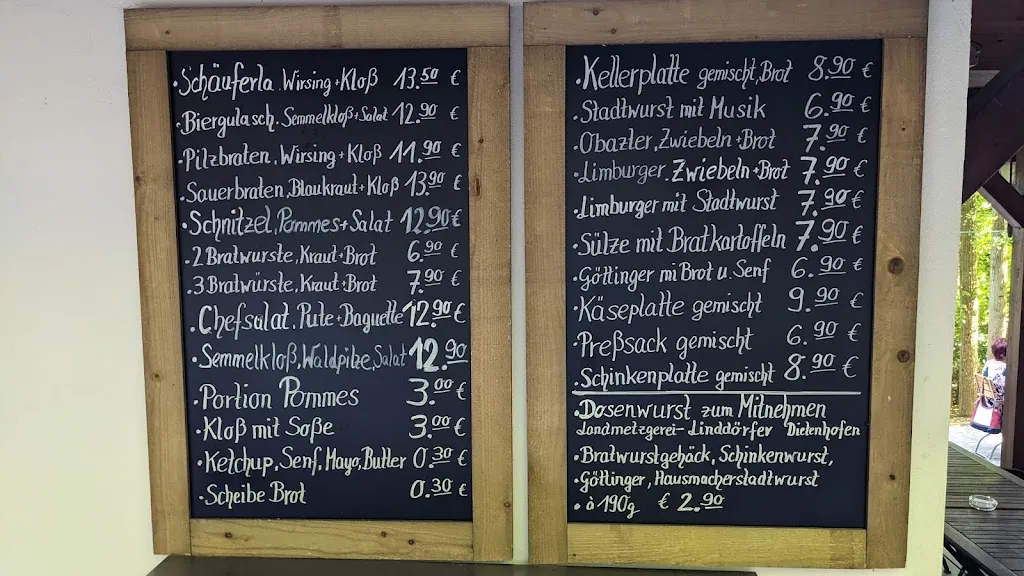 ·Schäuferla. Wirsing+Kloß 13.50 €
·Biergulasch. Semmelkloß+Salat 12.90 €
·Pilzbraten, Wirsing+Kloß 11.90 €
·Sauerbraten, Blaukraut+Kloß 13.90 €
·Schnitzel, Pommes+Salat 12.90 €
·2 Bratwürste, Kraut+Brot 6.90 €
·3 Bratwürste, Kraut+Brot 7.90 €
·Chefsalat, Pute+Baguette 12.90 €
·Semmelkloß, Waldpilze, Salat 12.90
·Portion Pommes 3.00 €
·Kloß mit Soße 3.00 €
·Ketchup, Senf, Mayo, Butter 0.30 €
·Scheibe Brot 0.30 €
·Kellerplatte gemischt, Brot 8.90 €
·Stadtwurst mit Musik 6.90 €
·Obazter, Zwiebeln+Brot 7.90 €
·Limburger, Zwiebeln+Brot 7.90 €
·Limburger mit Stadtwurst 7.90 €
·Sülze mit Bratkartoffeln 7.90 €
·Göttinger mi Brot u. Senf 6.90 €
·Käseplatte gemischt 9.90 €
·Preßsack gemischt 6.90 €
·Schinkenplatte gemischt 8.90 €
·Dosenwurst zum Mitnehmen
Landmetzgerei-Linddörfer Dietenhofen
·Bratwurstgehäck, Schinkenwurst,
·Göttinger, Hausmacherstadtwurst
·à 190g € 2.90